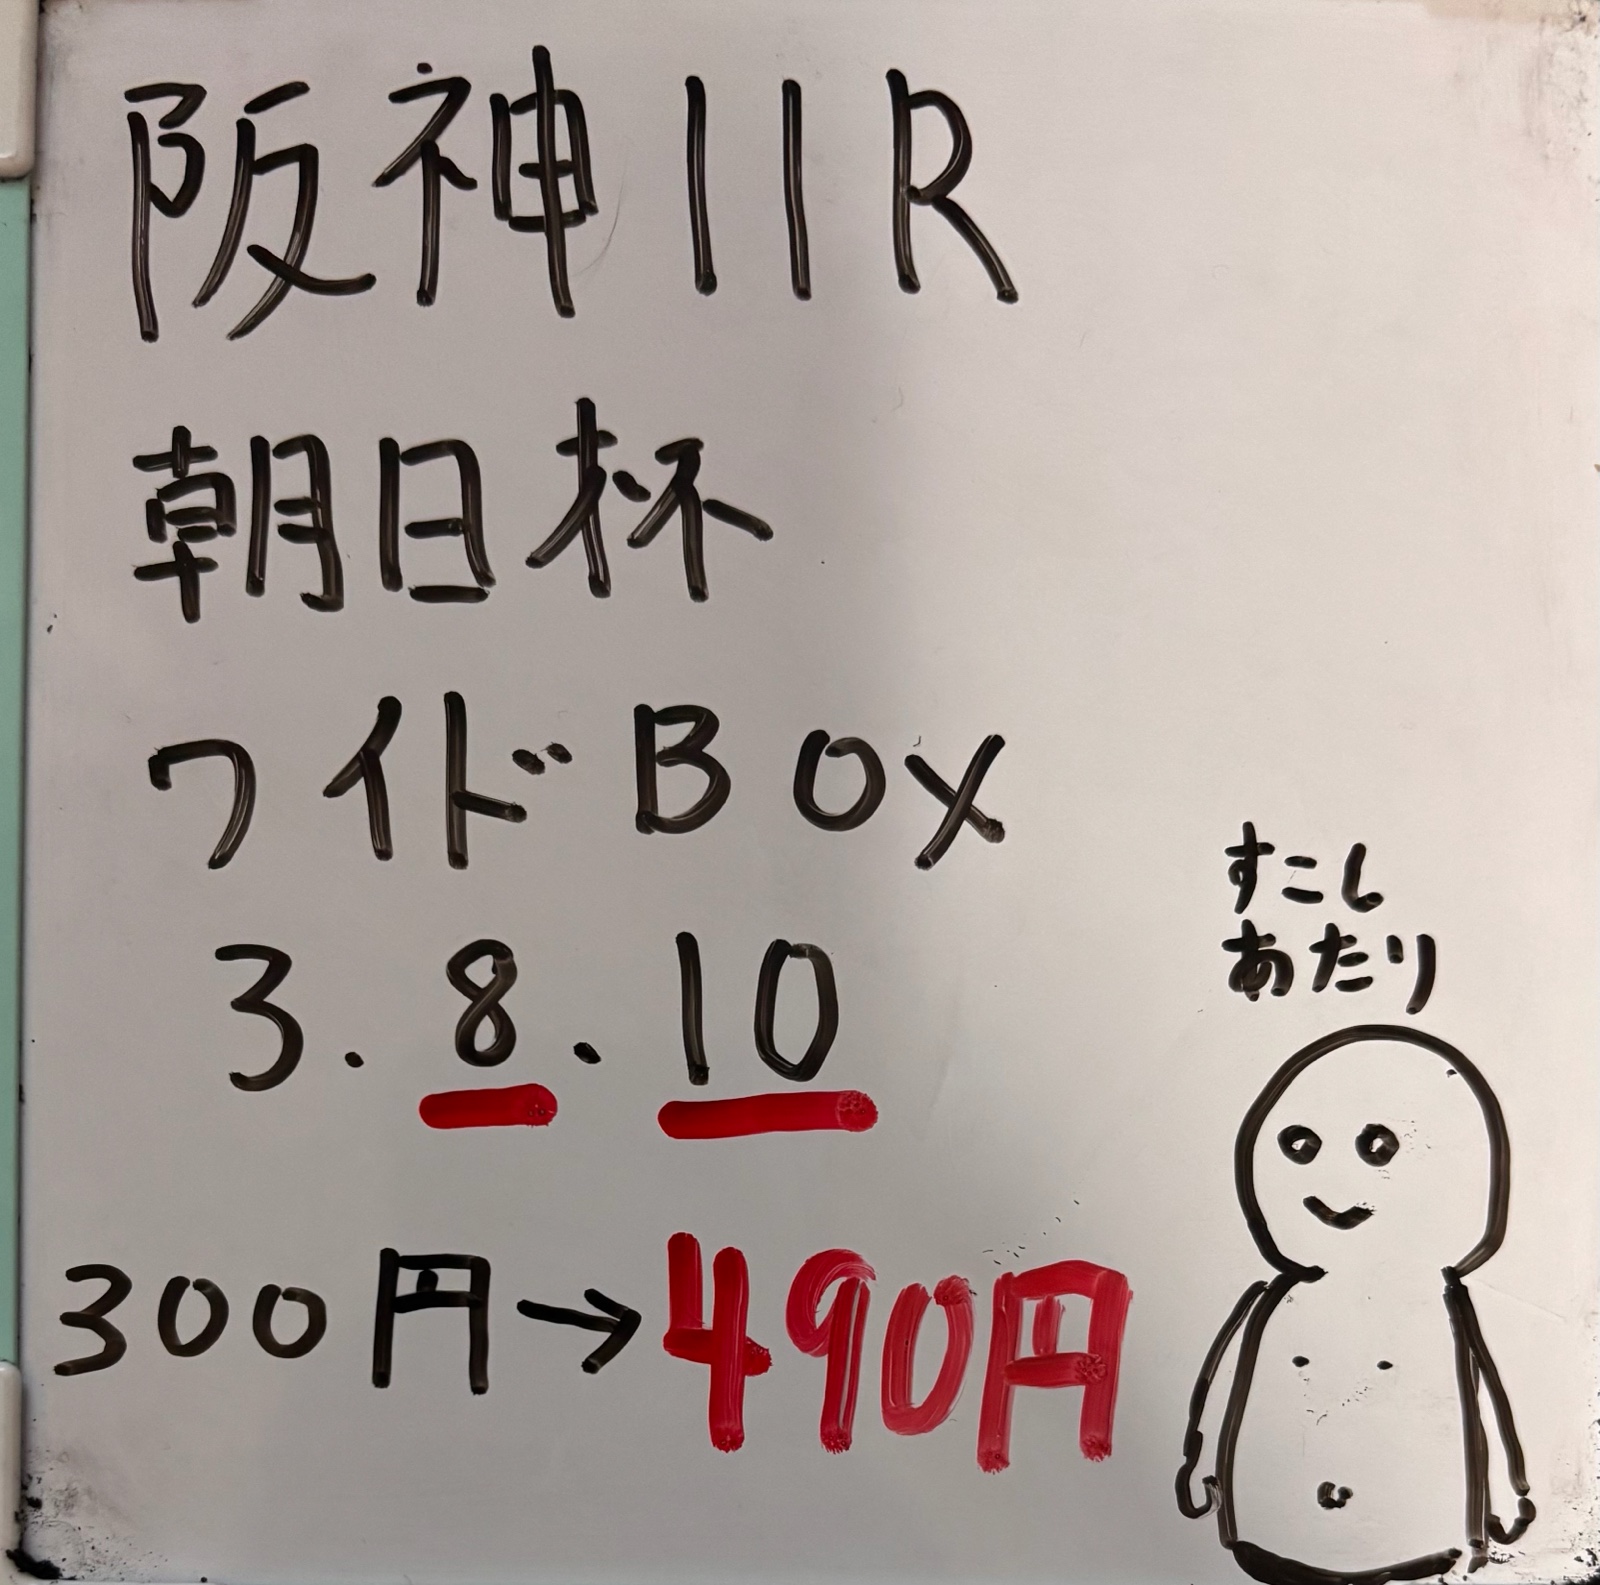 阪神11R
朝日杯
ワイドBOX
3.8.10
300円→490円
すこし
あたり